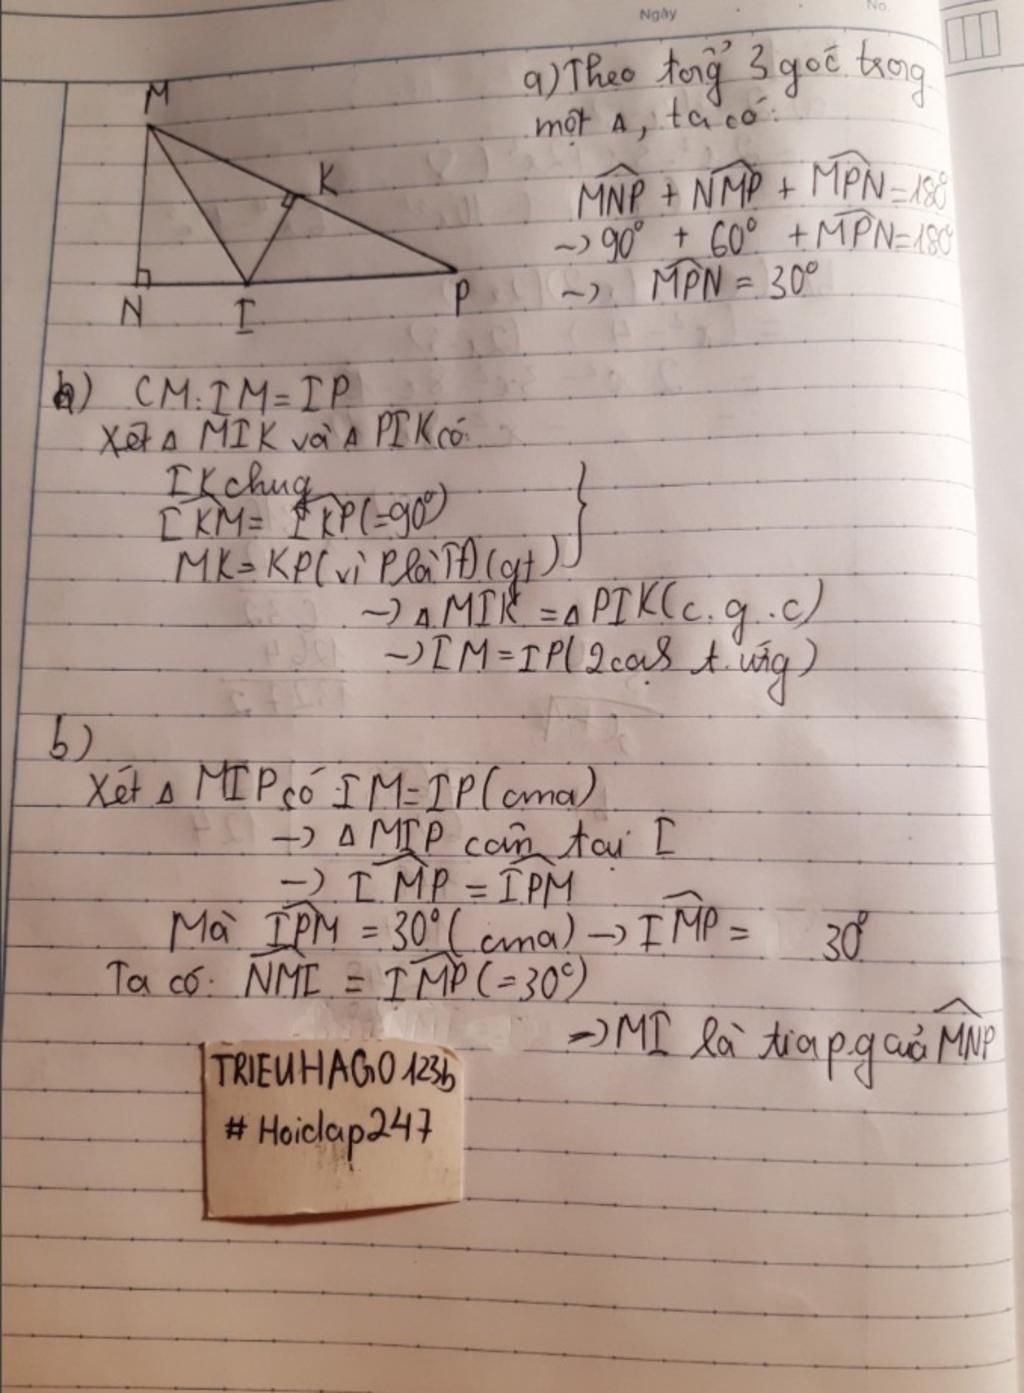 Ngày
No.
a) Theo tổng 3 góc trong
một Δ, ta có:
MNP + NMP + MPN = 180°
→ 90° + 60° + MPN = 180°
→ MPN = 30°
M
K
N
I
P
a) CM: IM = IP
Xét Δ MIK và Δ PIK có
IK chug
IKM = IKP (=90°)
MK = KP (vì P là TĐ) (gt)
→ Δ MIK = Δ PIK (c.g.c)
→ IM = IP (2 cạh t.ứg)
b)
Xét Δ MIP có IM = IP (cma)
→ Δ MIP cân tại I
→ IMP = IPM
Mà IPM = 30° (cma) → IMP = 30°
Ta có: NMI = IMP (=30°)
→ MI là tia p.g của MNP
TRIEUHAGO123b
# Hoidap247